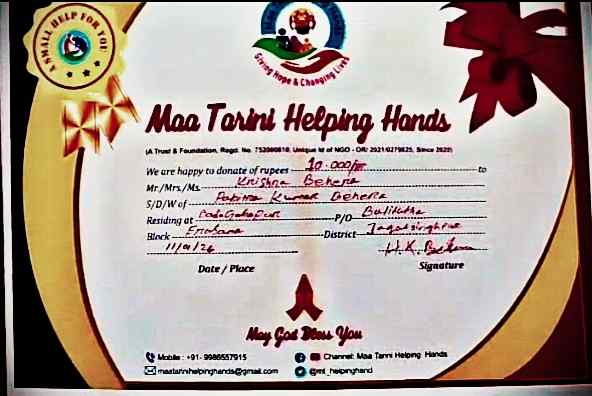 A SMALL HELP FOR YOU
Giving Hope & Changing Lives
Maa Tarini Helping Hands
(A Trust & Foundation, Regd. No. 752000810, Unique Id of NGO - OR/ 2021/0279825, Since 2020)
We are happy to donate of rupees 10.000/= to
Mr./Mrs./Ms. Krishna Behera
S/D/W of Pabitra Kumar Behera
Residing at P/O Balikuda
Block Ersama District Jagatsinghpur
11/01/26
Date / Place Signature
May God Bless You
Mobile : +91- 9986557915 Channel: Maa Tarini Helping Hands
maatarinihelpinghands@gmail.com @mt_helpinghand